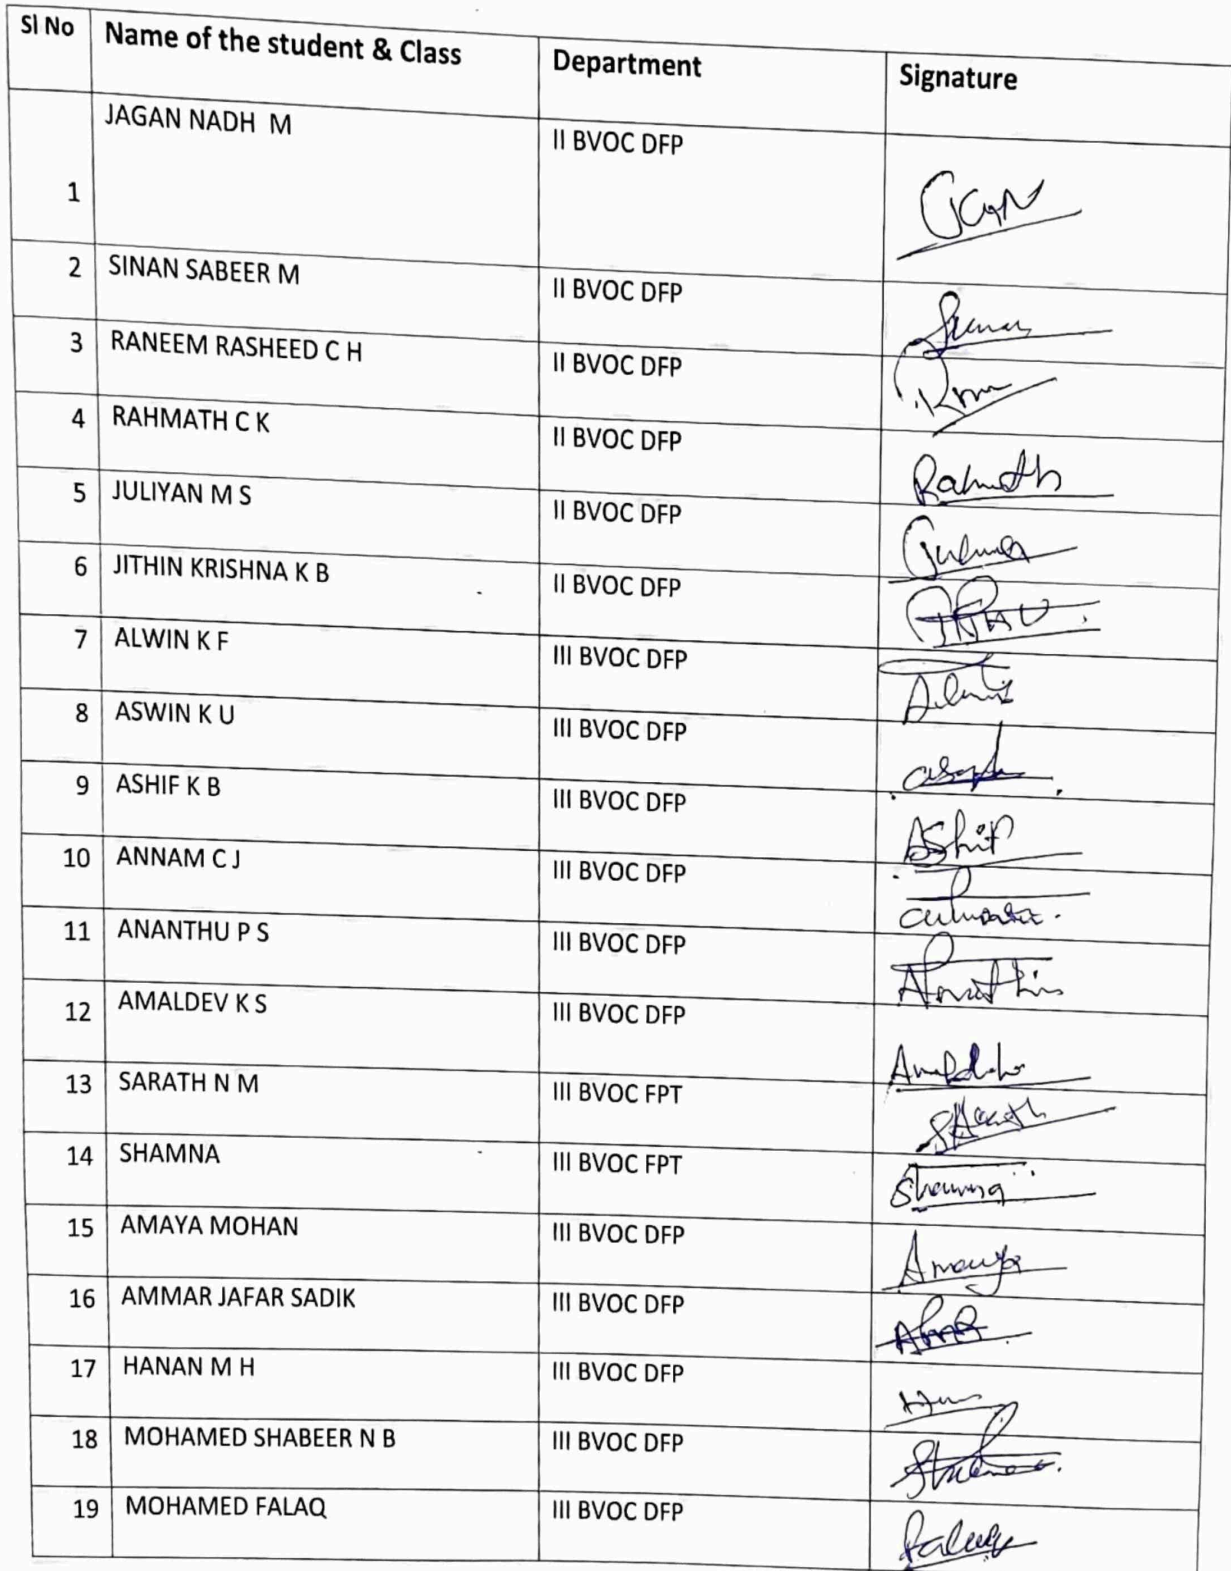 Sl No Name of the student & Class Department Signature
1 JAGAN NADH M II BVOC DFP
2 SINAN SABEER M II BVOC DFP
3 RANEEM RASHEED C H II BVOC DFP
4 RAHMATH C K II BVOC DFP Rahmath
5 JULIYAN M S II BVOC DFP
6 JITHIN KRISHNA K B II BVOC DFP
7 ALWIN K F III BVOC DFP
8 ASWIN K U III BVOC DFP
9 ASHIF K B III BVOC DFP Ashif
10 ANNAM C J III BVOC DFP
11 ANANTHU P S III BVOC DFP
12 AMALDEV K S III BVOC DFP
13 SARATH N M III BVOC FPT
14 SHAMNA III BVOC FPT Shamna
15 AMAYA MOHAN III BVOC DFP Amaya
16 AMMAR JAFAR SADIK III BVOC DFP
17 HANAN M H III BVOC DFP
18 MOHAMED SHABEER N B III BVOC DFP
19 MOHAMED FALAQ III BVOC DFP